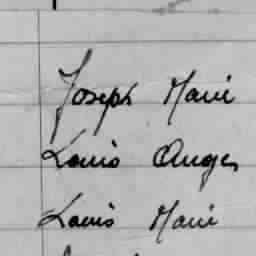 Joseph Marie
Louis Ange
Louis Marie